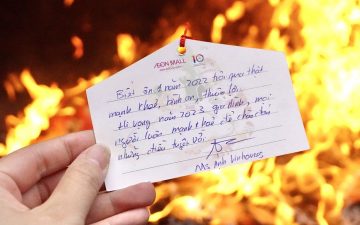 ÆON MALL 10
Biết ơn 1 năm 2022 trôi qua thật
mạnh khoẻ, bình an, thuận lợi.
Hi vọng năm 2023 gia đình, mọi
người luôn mạnh khoẻ để chào đón
những điều tuyệt vời.
Ms. Ánh Vinhomes